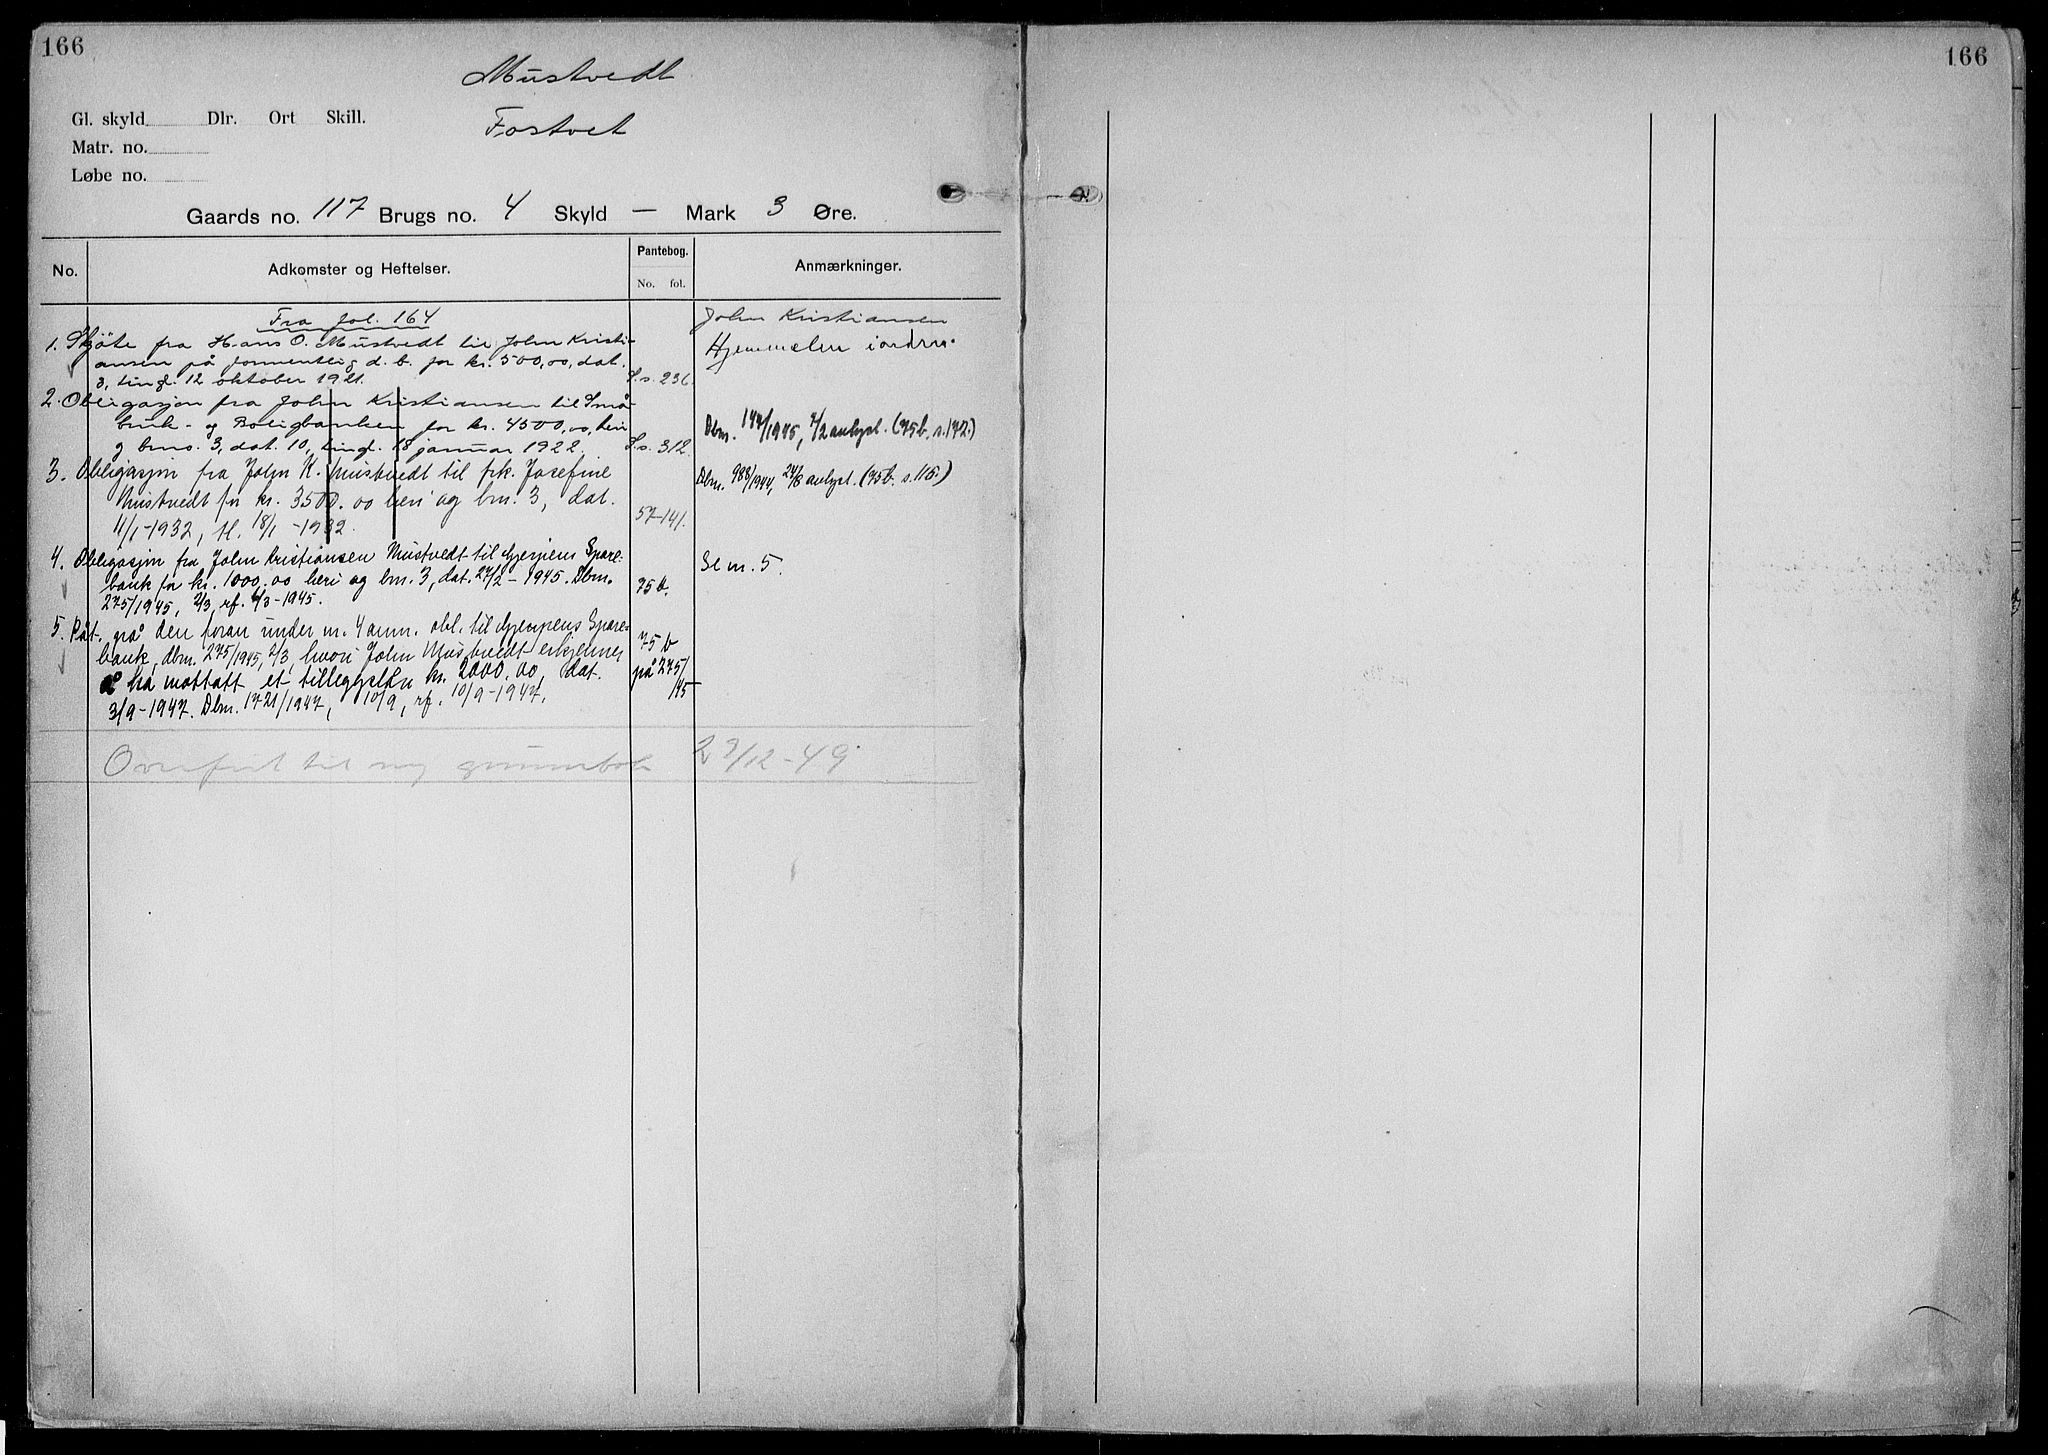 166
166
Mustvedt
Gl. skyld Dlr. Ort Skill.
Fostvet
Matr. no.
Løbe no.
Gaards no. 117 Brugs no. 4 Skyld — Mark 3 Øre.
No. Adkomster og Heftelser. Pantebog. Anmærkninger.
No. fol.
Fra fol. 164
John Kristiansen
Hjemmelen i orden.
1. Skjøte fra Hans O. Mustvedt til John Kristi-
ansen på d. b. for kr. 500,00, dat.
3, tingl. 12 oktober 1921. S.s. 236.
2. Obligasjon fra John Kristiansen til Små-
bruk- og Boligbanken for kr. 4500,00, heri
og brno. 3, dat. 10, tingl. 18 januar 1922. S.s. 312.
Dbm. 144/1945, avlyst. (75b. s. 142.)
3. Obligasjon fra John K. Mustvedt til frk. Josefine
Mustvedt for kr. 3500.00 heri og bnr. 3, dat.
11/1-1932, tl. 18/1-1932. 57-141.
Dbm. 988/1944, 24/8 avlyst. (75b. s. 115.)
4. Obligasjon fra John Kristiansen Mustvedt til Gjerpens Spare-
bank for kr. 1000.00 heri og bnr. 3, dat. 27/2-1945. Dbm.
275/1945, 2/3, rf. 6/3-1945. 75b.
Se nr. 5.
5. Påt. på den foran under nr. 4 anm. obl. til Gjerpens Spare-
bank, dbm. 275/1945, 2/3, hvori John Mustvedt erkjenner
å ha mottatt et tilleggslån kr. 2000.00, dat.
3/9-1947. Dbm. 1721/1947, 10/9, rf. 10/9-1947.
75b
på 275/
/45
Overført til ny grunnbok 29/12-49